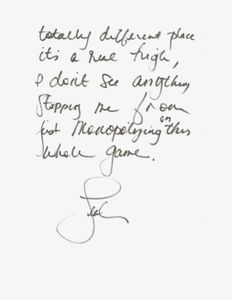 totally different place
it's a real high,
I don't see anything
stopping me from
just Monopolizing on this
whole game.